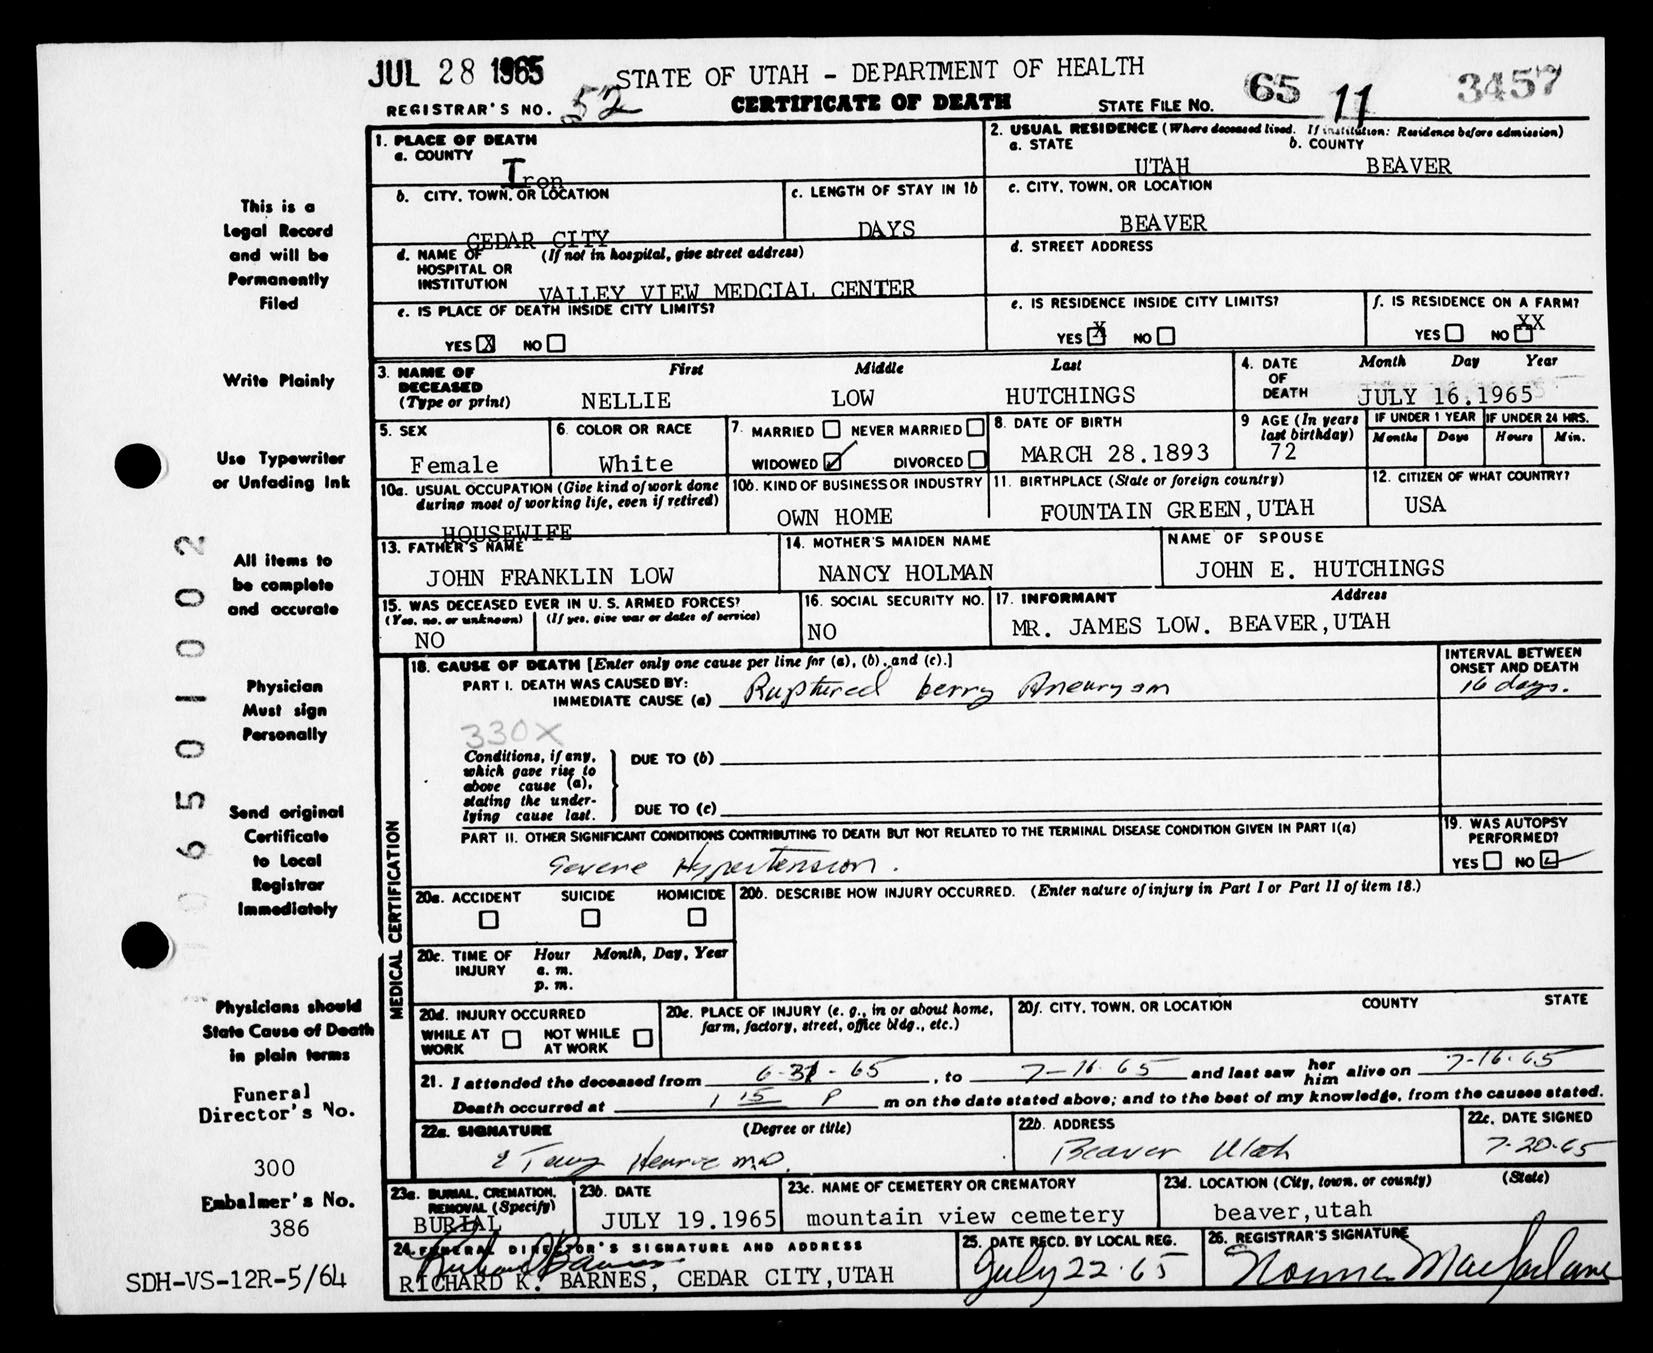 JUL 28 1965
STATE OF UTAH - DEPARTMENT OF HEALTH
REGISTRAR'S NO. 52
CERTIFICATE OF DEATH
STATE FILE NO. 65 11 3457
1. PLACE OF DEATH
a. COUNTY
Iron
2. USUAL RESIDENCE (Where deceased lived. If institution: Residence before admission)
a. STATE b. COUNTY
UTAH BEAVER
b. CITY, TOWN, OR LOCATION
CEDAR CITY
c. LENGTH OF STAY IN 1b
DAYS
c. CITY, TOWN, OR LOCATION
BEAVER
d. NAME OF (If not in hospital, give street address)
HOSPITAL OR
INSTITUTION VALLEY VIEW MEDCIAL CENTER
d. STREET ADDRESS
e. IS PLACE OF DEATH INSIDE CITY LIMITS?
YES X NO
e. IS RESIDENCE INSIDE CITY LIMITS?
YES X NO
f. IS RESIDENCE ON A FARM?
YES NO XX
3. NAME OF First Middle Last
DECEASED
(Type or print) NELLIE LOW HUTCHINGS
4. DATE Month Day Year
OF
DEATH JULY 16.1965
5. SEX
Female
6. COLOR OR RACE
White
7. MARRIED NEVER MARRIED
WIDOWED ✓ DIVORCED
8. DATE OF BIRTH
MARCH 28.1893
9 AGE (In years
last birthday)
72
IF UNDER 1 YEAR IF UNDER 24 HRS.
Months Days Hours Min.
10a. USUAL OCCUPATION (Give kind of work done
during most of working life, even if retired)
HOUSEWIFE
10b. KIND OF BUSINESS OR INDUSTRY
OWN HOME
11. BIRTHPLACE (State or foreign country)
FOUNTAIN GREEN,UTAH
12. CITIZEN OF WHAT COUNTRY?
USA
13. FATHER'S NAME
JOHN FRANKLIN LOW
14. MOTHER'S MAIDEN NAME
NANCY HOLMAN
NAME OF SPOUSE
JOHN E. HUTCHINGS
15. WAS DECEASED EVER IN U. S. ARMED FORCES?
(Yes, no, or unknown) (If yes, give war or dates of service)
NO
16. SOCIAL SECURITY NO.
NO
17. INFORMANT Address
MR. JAMES LOW. BEAVER,UTAH
MEDICAL CERTIFICATION
18. CAUSE OF DEATH [Enter only one cause per line for (a), (b), and (c).]
INTERVAL BETWEEN
ONSET AND DEATH
PART I. DEATH WAS CAUSED BY:
IMMEDIATE CAUSE (a) Ruptured berry Aneurysm
16 days.
330X
Conditions, if any,
which gave rise to
above cause (a),
stating the under-
lying cause last.
DUE TO (b)
DUE TO (c)
PART II. OTHER SIGNIFICANT CONDITIONS CONTRIBUTING TO DEATH BUT NOT RELATED TO THE TERMINAL DISEASE CONDITION GIVEN IN PART I(a)
Severe Hypertension.
19. WAS AUTOPSY
PERFORMED?
YES NO ✓
20a. ACCIDENT SUICIDE HOMICIDE
20b. DESCRIBE HOW INJURY OCCURRED. (Enter nature of injury in Part I or Part II of item 18.)
20c. TIME OF Hour Month, Day, Year
INJURY a. m.
p. m.
20d. INJURY OCCURRED
WHILE AT NOT WHILE
WORK AT WORK
20e. PLACE OF INJURY (e. g., in or about home,
farm, factory, street, office bldg., etc.)
20f. CITY, TOWN, OR LOCATION COUNTY STATE
21. I attended the deceased from 6-31-65, to 7-16-65 and last saw her him alive on 7-16-65
Death occurred at 1 15 P m on the date stated above; and to the best of my knowledge, from the causes stated.
22a. SIGNATURE (Degree or title)
M.D.
22b. ADDRESS
Beaver Utah
22c. DATE SIGNED
7-20-65
23a. BURIAL, CREMATION,
REMOVAL (Specify)
BURIAL
23b. DATE
JULY 19.1965
23c. NAME OF CEMETERY OR CREMATORY
mountain view cemetery
23d. LOCATION (City, town, or county) (State)
beaver,utah
24. FUNERAL DIRECTOR'S SIGNATURE AND ADDRESS
Richard K Barnes
RICHARD K. BARNES, CEDAR CITY,UTAH
25. DATE RECD. BY LOCAL REG.
July 22-65
26. REGISTRAR'S SIGNATURE
Norma Macfarlane
This is a
Legal Record
and will be
Permanently
Filed
Write Plainly
Use Typewriter
or Unfading Ink
All items to
be complete
and accurate
Physician
Must sign
Personally
Send original
Certificate
to Local
Registrar
Immediately
Physicians should
State Cause of Death
in plain terms
Funeral
Director's No.
300
Embalmer's No.
386
SDH-VS-12R-5/64
0650I002